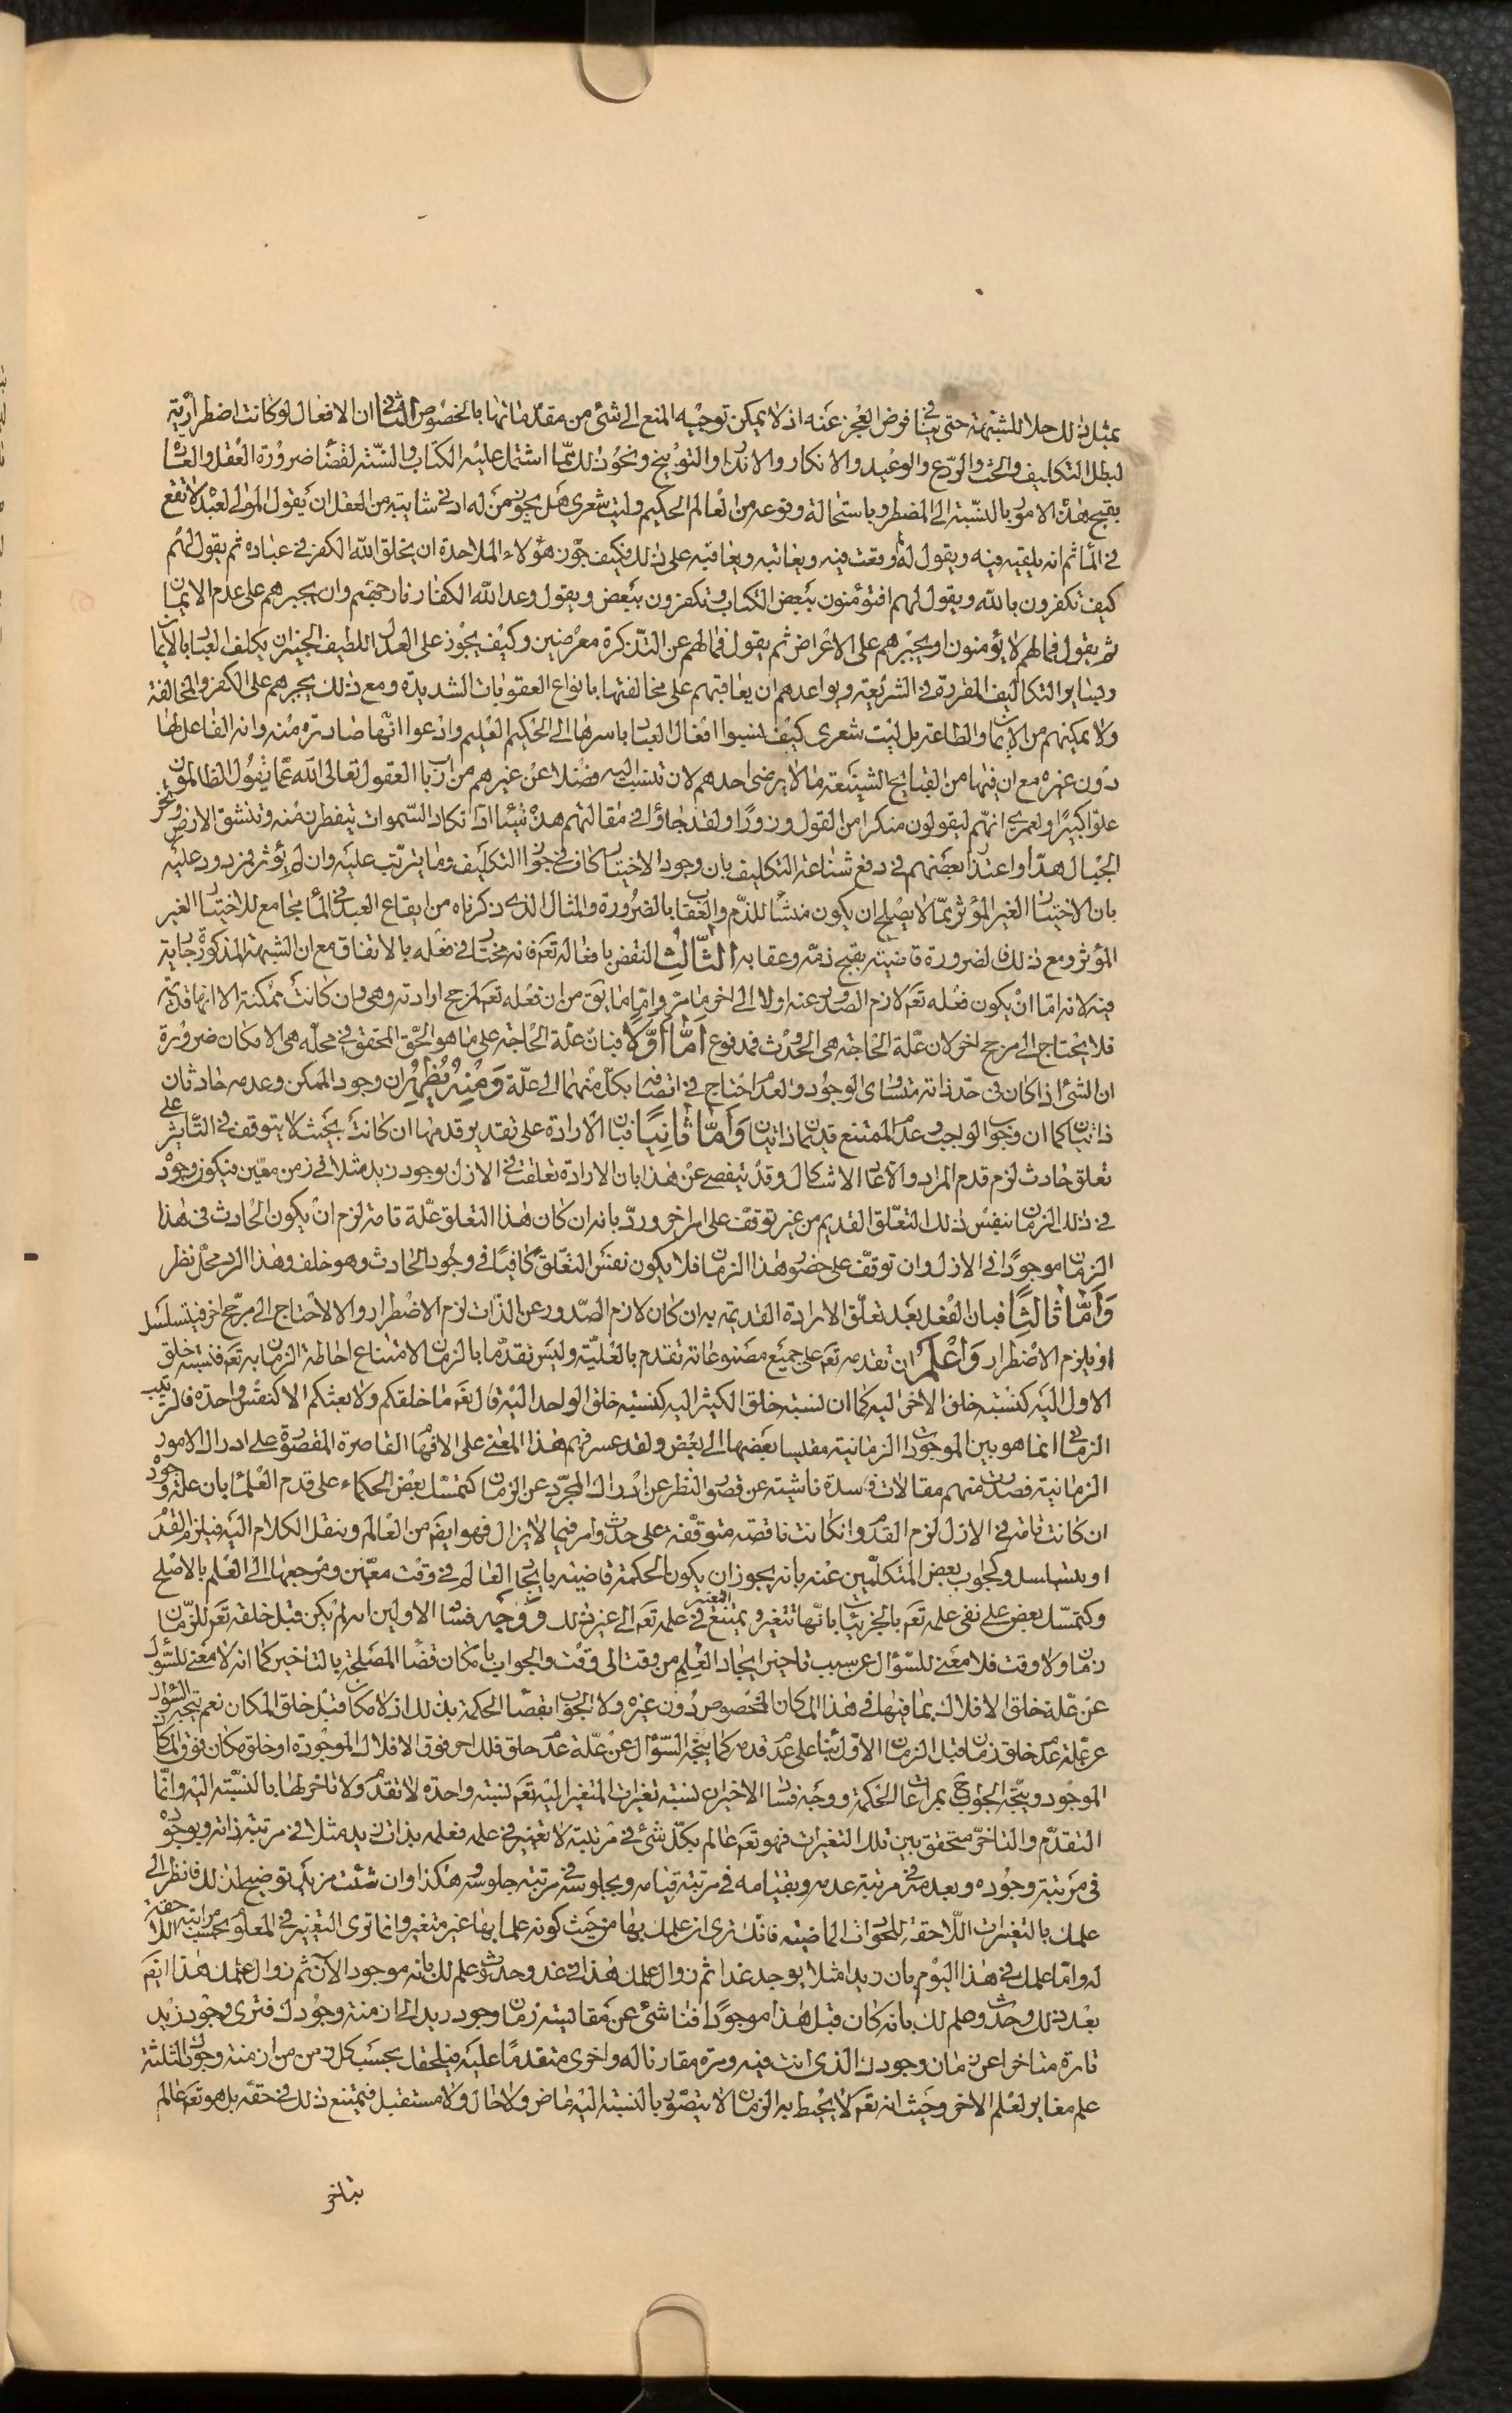 بمثل ذلك حلا للشبهة حتى ينافي فرض العجز عنه اذ لا يمكن توجيه المنع الى شئ من مقدماتها بالخصوص الثاني ان الافعال لو كانت اضطرارية
لبطل التكاليف والحث والردع والوعيد والانكار والانذار والتوبيخ ونحو ذلك مما اشتمل عليه الكتاب والسنة لقضاء ضرورة العقل والعادة
بقبح هذه الامور بالنسبة الى المضطر وباستحالة وقوعه من العالم الحكيم وليت شعرى هل يجوز من له ادنى شائبة من العقل ان يقول المولى لعبده لا تقع
في الماء ثم انه يلقيه فيه ويقول له لم وقعت فيه ويعاتبه ويعاقبه على ذلك فكيف جوز هؤلاء الملاحدة ان يخلق الله الكفر في عباده ثم يقول لهم
كيف تكفرون بالله ويقول لهم افتؤمنون ببعض الكتاب وتكفرون ببعض ويقول وعد الله الكفار نار جهنم وان يجبرهم على عدم الايمان
ثم يقول فمالهم لا يؤمنون او يجبرهم على الاعراض ثم يقول فمالهم عن التذكرة معرضين وكيف يجوز على العدل اللطيف الخبير ان يكلف العباد بالايمان
وبساير التكاليف المقررة في الشريعة ويواعدهم ان يعاقبهم على مخالفتها بانواع العقوبات الشديدة ومع ذلك يجبرهم على الكفر والمخالفة
ولا يمكنهم من الايمان والطاعة بل ليت شعرى كيف نسبوا افعال العباد باسرها الى الحكيم العليم وادعوا انها صادرة منه وانه الفاعل لها
دون غيره مع ان فيها من القبايح الشنيعة ما لا يرضى احدهم لان تنسب اليه فضلا عن غيرهم من ارباب العقول تعالى الله عما يقول الظالمون
علوا كبيرا ولعمرى انهم ليقولون منكرا من القول وزورا ولقد جاؤا في مقالتهم هذه شيئا ادا تكاد السموات يتفطرن منه وتنشق الارض وتخر
الجبال هدا واعتذار بعضهم في دفع شناعة التكليف بان وجود الاختيار كاف في جواز التكليف وما يترتب عليه وان لم يؤثر مردود عليه
بان الاختيار الغير المؤثر مما لا يصلح ان يكون منشأ للذم والعقاب بالضرورة والمثال الذى ذكرناه من ايقاع العبد في الماء مجامع للاختيار الغير
المؤثر ومع ذلك فالضرورة قاضية بقبح ذمه وعقابه الثالث النقض بافعاله تعم فانه مختار في فعله بالاتفاق مع ان الشبهة المذكورة جارية
فيه لانه اما ان يكون فعله تعم لازم الصدور عنه اولا الى اخر ما مر واما ما يق من ان فعله تعم لمرجح ارادته وهي وان كانت ممكنة الا انها قديمة
فلا يحتاج الى مرجح اخر لان علة الحاجة هى الحدوث فمدفوع اما اولا فبان علة الحاجة على ما هو الحق المحقق في محله هى الامكان ضرورة
ان الشئ اذا كان في حد ذاته متساوى الوجود والعدم احتاج في اتصافه بكل منهما الى علة ومنه يظهر ان وجود الممكن وعدمه حادثان
ذاتيان كما ان وجوب الواجب وعدم الممتنع قديمان ذاتيان واما ثانيا فبان الارادة على تقدير قدمها ان كانت بحيث لا يتوقف في التأثير على
تعلق حادث لزم قدم المراد والا عاد الاشكال وقد يتفصى عن هذا بان الارادة تعلقت في الازل بوجود زيد مثلا في زمن معين فيكون وجوده
في ذلك الزمان بنفس ذلك التعلق القديم من غير توقف على امر اخر ورد بانه ان كان هذا التعلق علة تامة لزم ان يكون الحادث في هذا
الزمان موجودا في الازل وان توقف على حضور هذا الزمان فلا يكون نفس التعلق كافيا في وجود الحادث وهو خلف وهذا الرد محل نظر
واما ثالثا فبان الفعل بعد تعلق الارادة القديمة به ان كان لازم الصدور عن الذات لزم الاضطرار والا لاحتاج الى مرجح اخر فيتسلسل
او يلزم الاضطرار واعلم ان تقدمه تعم على جميع مصنوعاته تقدم بالعلية وليس تقدما بالزمان لامتناع احاطة الزمان به تعم فنسبة خلق
الاول اليه كنسبة خلق الاخر اليه كما ان نسبة خلق الكثير اليه كنسبة خلق الواحد اليه قال تعم ما خلقكم ولا بعثكم الا كنفس واحدة فالترتيب
الزمانى انما هو بين الموجودات الزمانية مقيسا بعضها الى بعض ولقد عسر فهم هذا المعنى على الافهام القاصرة المقصورة على ادراك الامور
الزمانية فصدرت منهم مقالات فاسدة ناشئة عن قصور النظر عن ادراك المجرد عن الزمان كتمسك بعض الحكماء على قدم العالم بان علة وجوده
ان كانت تامة في الازل لزم القدم وان كانت ناقصة متوقفة على حدوث امر فيما لا يزال فهو ايضم من العالم وينقل الكلام اليه فيلزم القدم
او يتسلسل وكجواب بعض المتكلمين عنه بانه يجوز ان يكون الحكمة قاضية بايجاد العالم في وقت معين ومرجعها الى العلم بالاصلح
وكتمسك بعض على نفى علمه تعم بالجزئيات بانها تتغير ويمتنع التغير في علمه تعم الى غير ذلك ووجه فساد الاولين انه لم يكن قبل خلقه تعم للزمان
زمان ولا وقت فلا معنى للسؤال عن سبب تاخير ايجاد العالم من وقت الى وقت والجواب بامكان قضاء المصلحة بالتاخير كما انه لا معنى للسؤال
عن علة خلق الافلاك بما فيها في هذا المكان المخصوص دون غيره ولا الجواب باقتضاء الحكمة بذلك اذ لا مكان قبل خلق المكان نعم يتجه السؤال
عن علة عدم خلق زمان قبل الزمان الاول بناء على عدم قدمه كما يتجه السؤال عن علة عدم خلق فلك اخر فوق الافلاك الموجودة او خلق مكان فوق المكان
الموجود ويتجه الجواب ح بمراعات الحكمة ووجه فساد الاخير ان نسبة تغيرات المتغير اليه تعم نسبة واحدة لا تقدم ولا تاخر لها بالنسبة اليه وانما
التقدم والتاخر متحقق بين تلك التغيرات فهو تعم عالم بكل شئ في مرتبته لا تغير في علمه فعلمه بذات زيد مثلا في مرتبة ذاته وبوجوده
في مرتبة وجوده وبعدمه في مرتبة عدمه وبقيامه في مرتبة قيامه وبجلوسه في مرتبة جلوسه وهكذا وان شئت مزيد توضيح لذلك فانظر الى
علمك بالتغيرات اللاحقة للحوادث الماضية فانك ترى ان علمك بها من حيث كونه علما بها غير متغير وانما ترى التغير في المعلوم بحسب مراتبه اللاحقة
له واما علمك في هذا اليوم بان زيدا مثلا يوجد غدا ثم زوال علمك هذا في غد وحدوث علم لك بانه موجود الآن ثم زوال علمك هذا ايضم
بعد ذلك وحدوث علم لك بانه كان قبل هذا موجودا فناشئ عن مقايسة زمان وجود زيد الى ازمنة وجودك فترى وجود زيد
تارة متاخرا عن زمان وجودك الذى انت فيه ومرة مقارنا له واخرى متقدما عليه فيلحقك بحسب كل زمن من ازمنة وجودك الثلثة
علم مغاير لعلم الاخر وحيث انه تعم لا يحيط به الزمان لا يتصور بالنسبة اليه ماض ولا حال ولا مستقبل فيمتنع ذلك في حقه بل هو تعم عالم